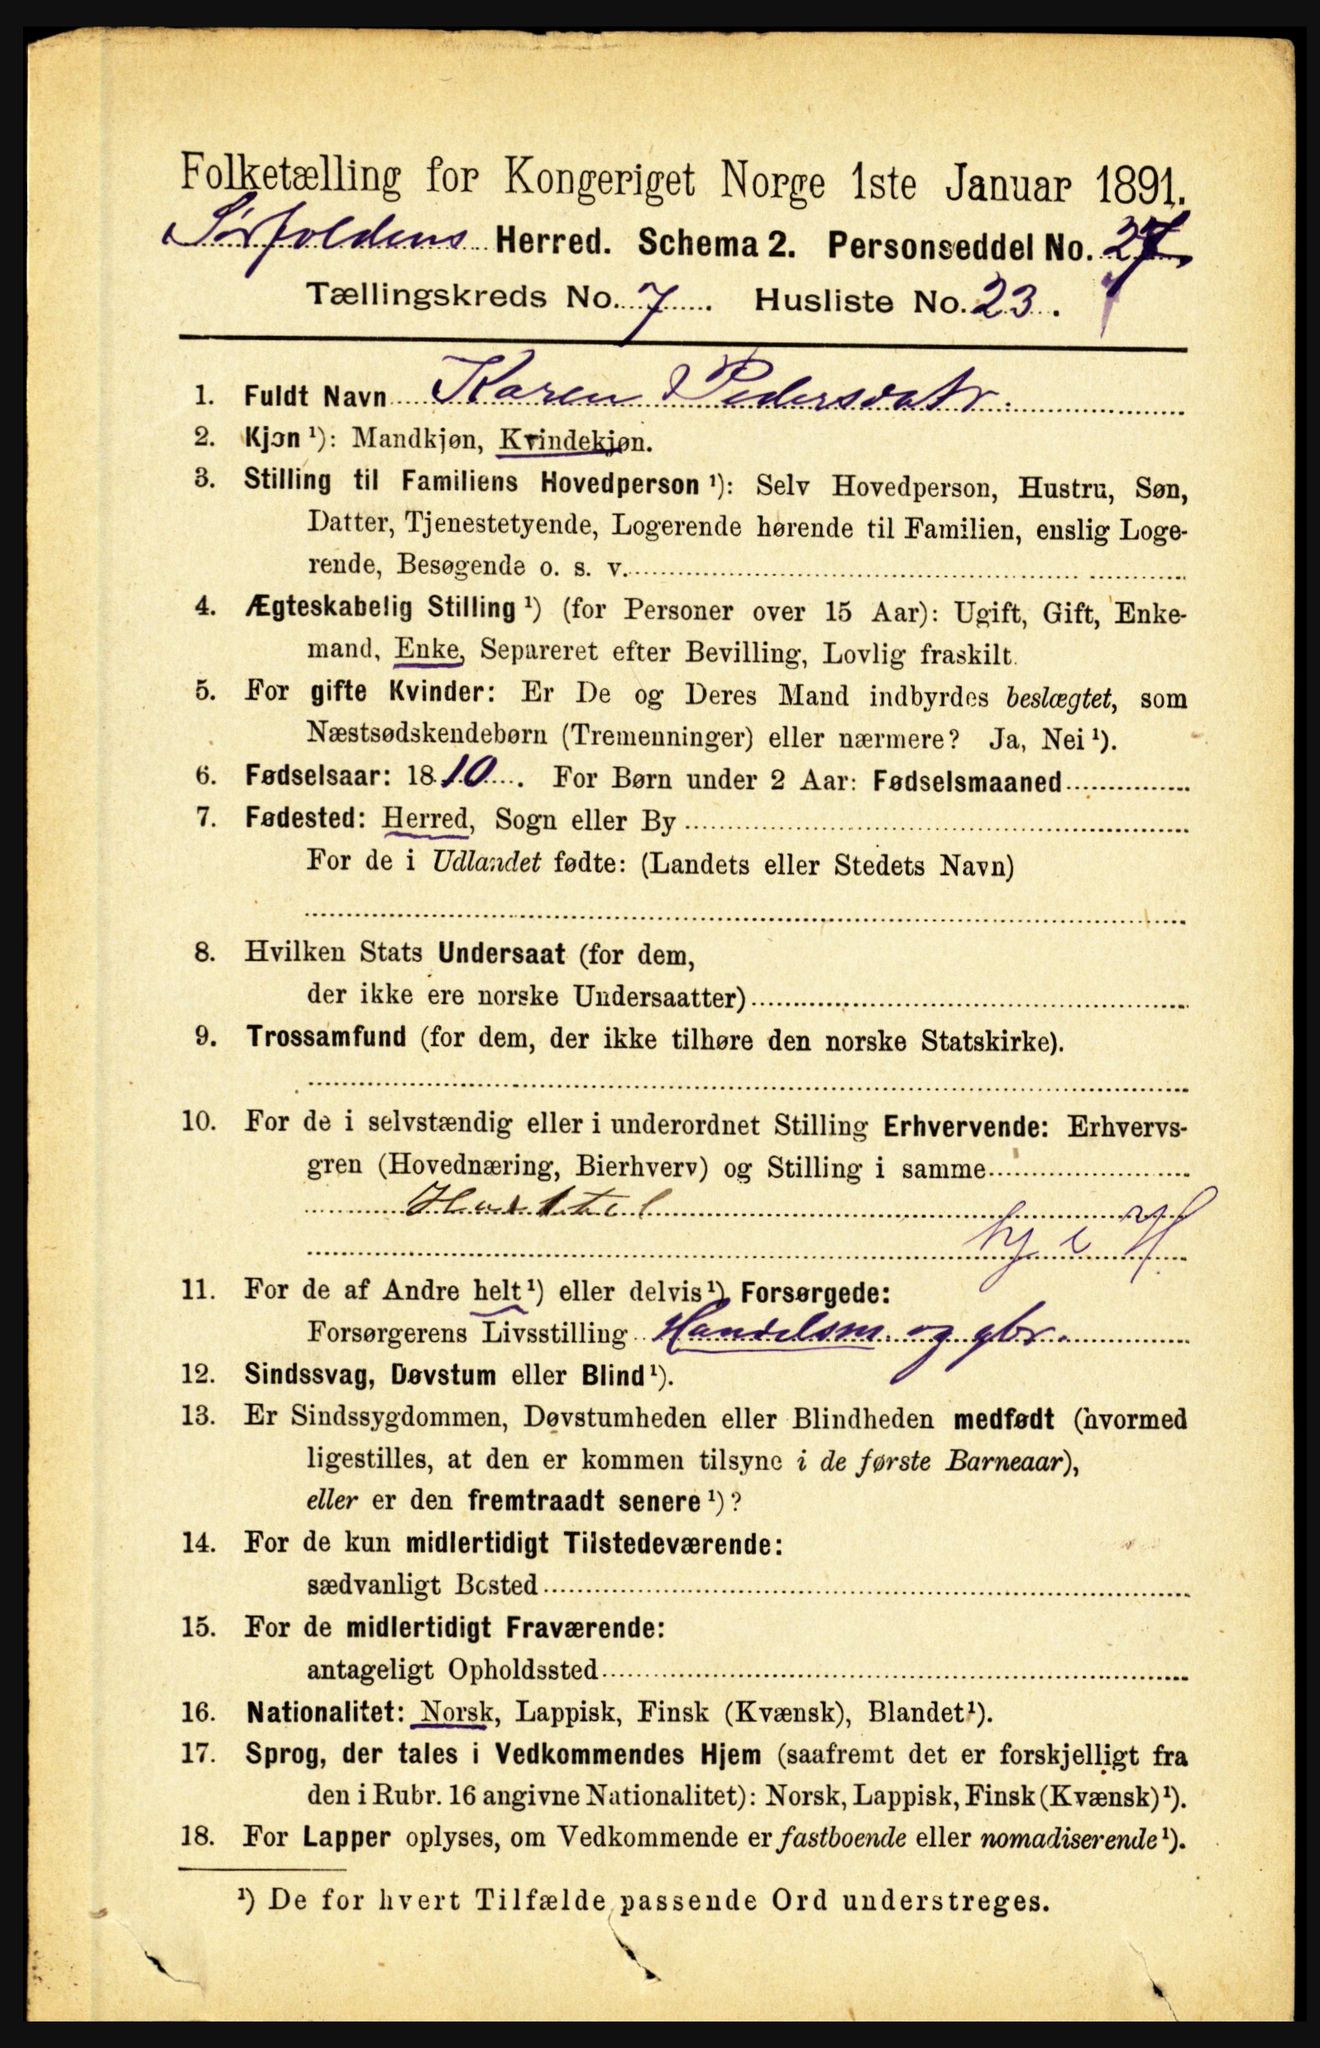 Folketælling for Kongeriget Norge 1ste Januar 1891.
Sørfoldens Herred. Schema 2. Personseddel No. 27
Tællingskreds No. 7. Husliste No. 23.
1. Fuldt Navn Karen Pedersdatr.
2. Kjøn¹): Mandkjøn, Kvindekjøn.
3. Stilling til Familiens Hovedperson¹): Selv Hovedperson, Hustru, Søn,
Datter, Tjenestetyende, Logerende hørende til Familien, enslig Loge-
rende, Besøgende o. s. v.
4. Ægteskabelig Stilling¹) (for Personer over 15 Aar): Ugift, Gift, Enke-
mand, Enke, Separeret efter Bevilling, Lovlig fraskilt.
5. For gifte Kvinder: Er De og Deres Mand indbyrdes beslægtet, som
Næstsødskendebørn (Tremenninger) eller nærmere? Ja, Nei¹).
6. Fødselsaar: 1810. For Børn under 2 Aar: Fødselsmaaned
7. Fødested: Herred, Sogn eller By
For de i Udlandet fødte: (Landets eller Stedets Navn)
8. Hvilken Stats Undersaat (for dem,
der ikke ere norske Undersaatter)
9. Trossamfund (for dem, der ikke tilhøre den norske Statskirke).
10. For de i selvstændig eller i underordnet Stilling Erhvervende: Erhvervs-
gren (Hovednæring, Bierhverv) og Stilling i samme
i H
11. For de af Andre helt¹) eller delvis¹) Forsørgede:
Forsørgerens Livsstilling Handelsm. og gbr.
12. Sindssvag, Døvstum eller Blind¹).
13. Er Sindssygdommen, Døvstumheden eller Blindheden medfødt (hvormed
ligestilles, at den er kommen tilsyne i de første Barneaar),
eller er den fremtraadt senere¹)?
14. For de kun midlertidigt Tilstedeværende:
sædvanligt Bosted
15. For de midlertidigt Fraværende:
antageligt Opholdssted
16. Nationalitet: Norsk, Lappisk, Finsk (Kvænsk), Blandet¹).
17. Sprog, der tales i Vedkommendes Hjem (saafremt det er forskjelligt fra
den i Rubr. 16 angivne Nationalitet): Norsk, Lappisk, Finsk (Kvænsk)¹).
18. For Lapper oplyses, om Vedkommende er fastboende eller nomadiserende¹).
¹) De for hvert Tilfælde passende Ord understreges.